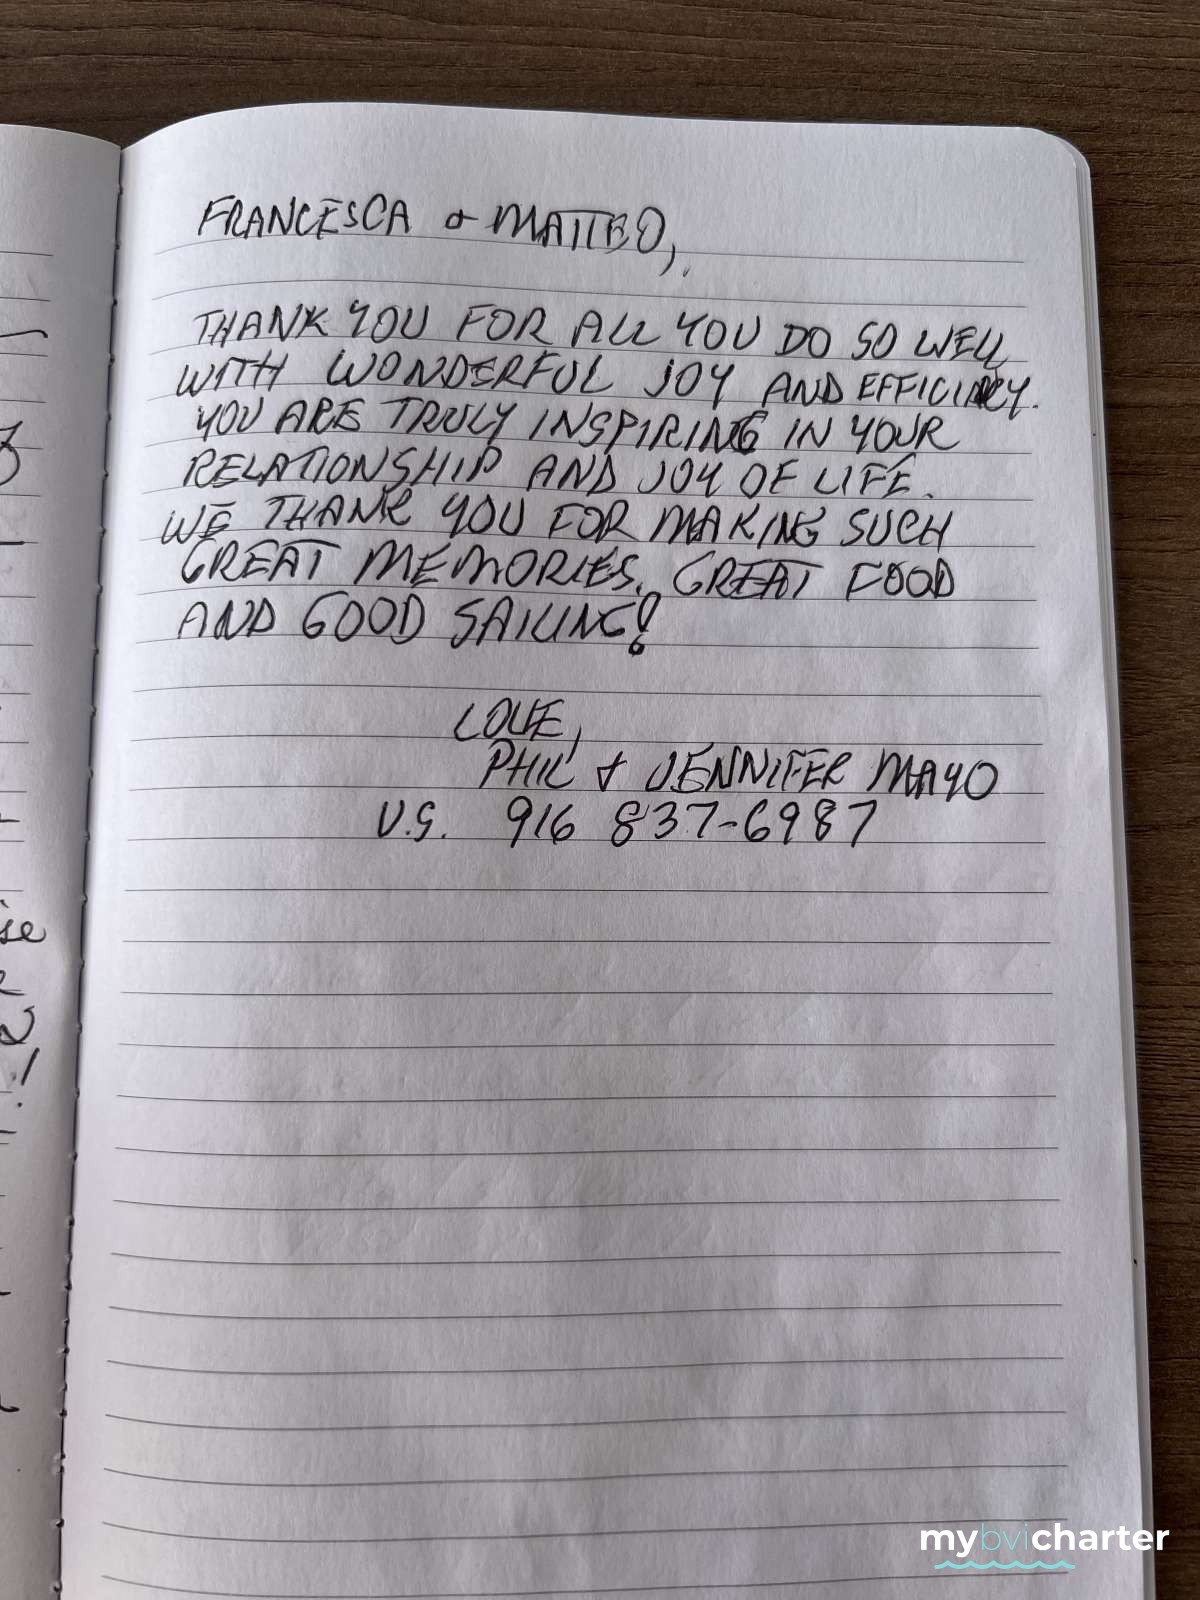 FRANCESCA & MATTEO,
THANK YOU FOR ALL YOU DO SO WELL
WITH WONDERFUL JOY AND EFFICINCY.
YOU ARE TRULY INSPIRING IN YOUR
RELATIONSHIP AND JOY OF LIFE.
WE THANK YOU FOR MAKING SUCH
GREAT MEMORIES. GREAT FOOD
AND GOOD SAILING!
LOVE,
PHIL & JENNIFER MAYO
U.S. 916 837-6987
mybvicharter